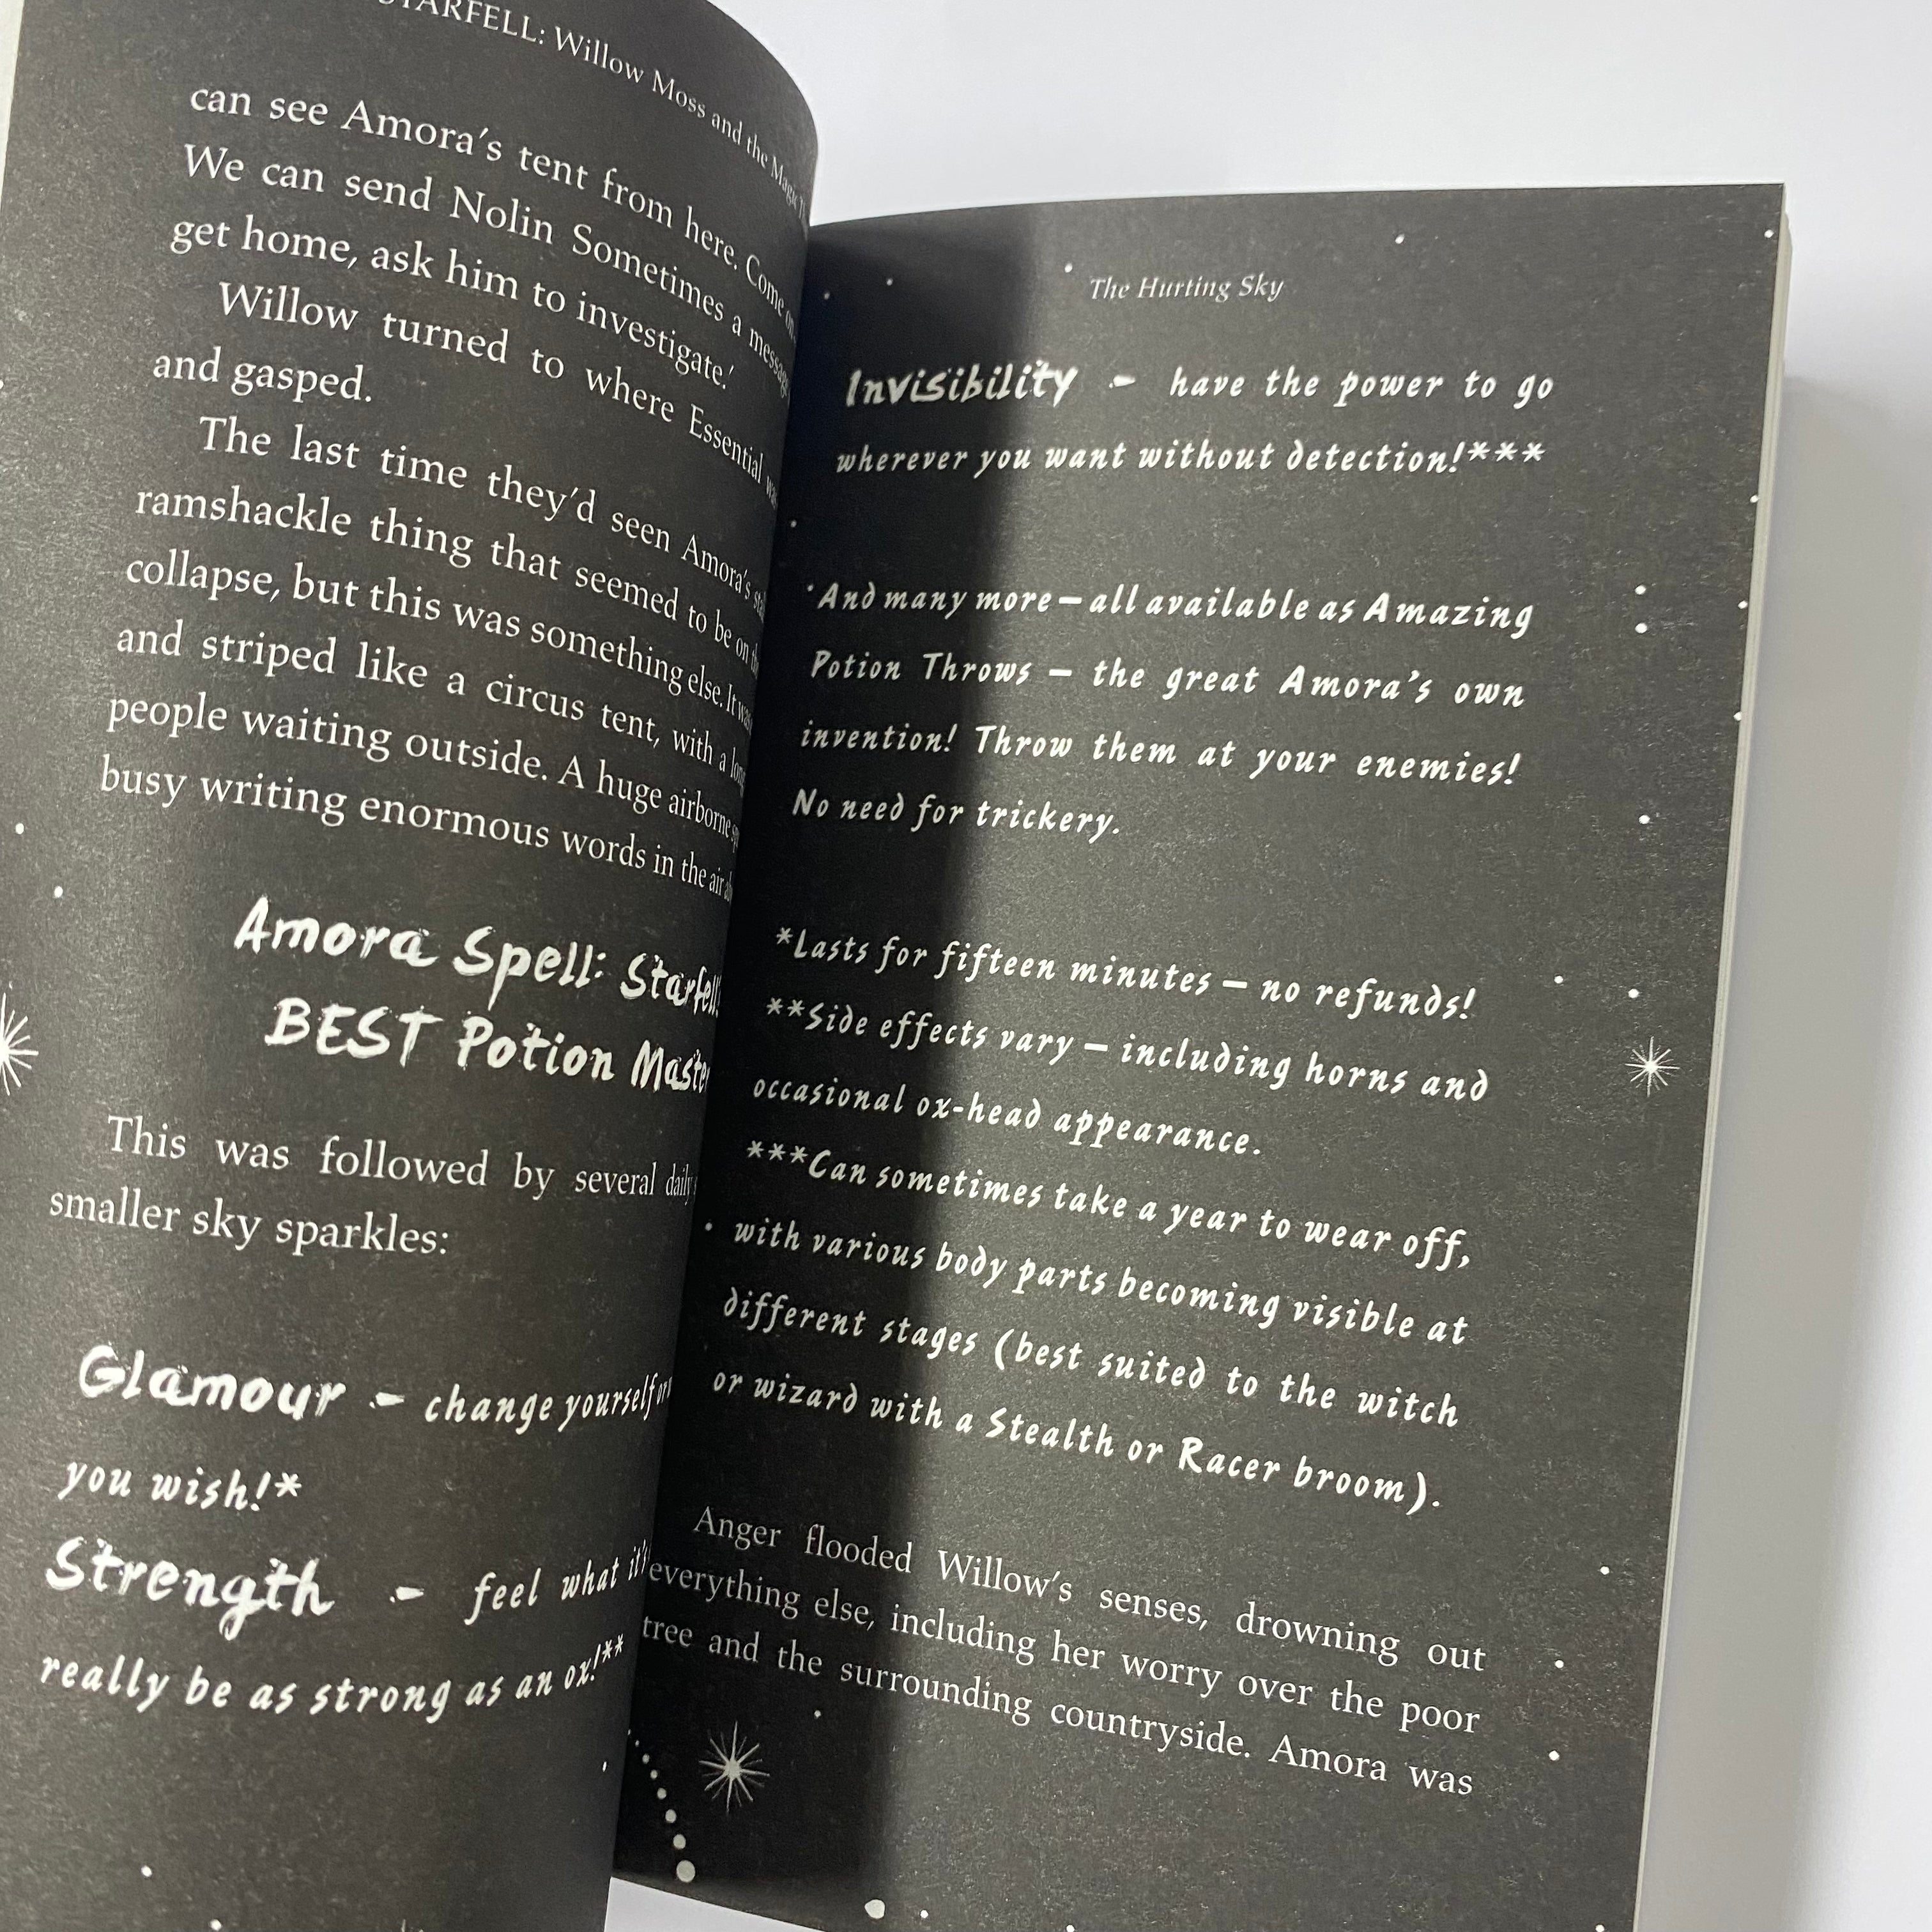 STARFELL: Willow Moss and the Magic
can see Amora's tent from here. Come on.
We can send Nolin Sometimes a message
get home, ask him to investigate.'
Willow turned to where Essential was
and gasped.
The last time they'd seen Amora's
ramshackle thing that seemed to be on
collapse, but this was something else. It was
and striped like a circus tent, with a long
people waiting outside. A huge airborne
busy writing enormous words in the air
Amora Spell: Starfell's
BEST Potion Master
This was followed by several
smaller sky sparkles:
Glamour – change yourself
you wish!*
Strength – feel what it's
really be as strong as an ox!**
The Hurting Sky
Invisibility – have the power to go
wherever you want without detection!***
And many more – all available as Amazing
Potion Throws – the great Amora's own
invention! Throw them at your enemies!
No need for trickery.
*Lasts for fifteen minutes – no refunds!
**Side effects vary – including horns and
occasional ox-head appearance.
***Can sometimes take a year to wear off,
with various body parts becoming visible at
different stages (best suited to the witch
or wizard with a Stealth or Racer broom).
Anger flooded Willow's senses, drowning out
everything else, including her worry over the poor
tree and the surrounding countryside. Amora was